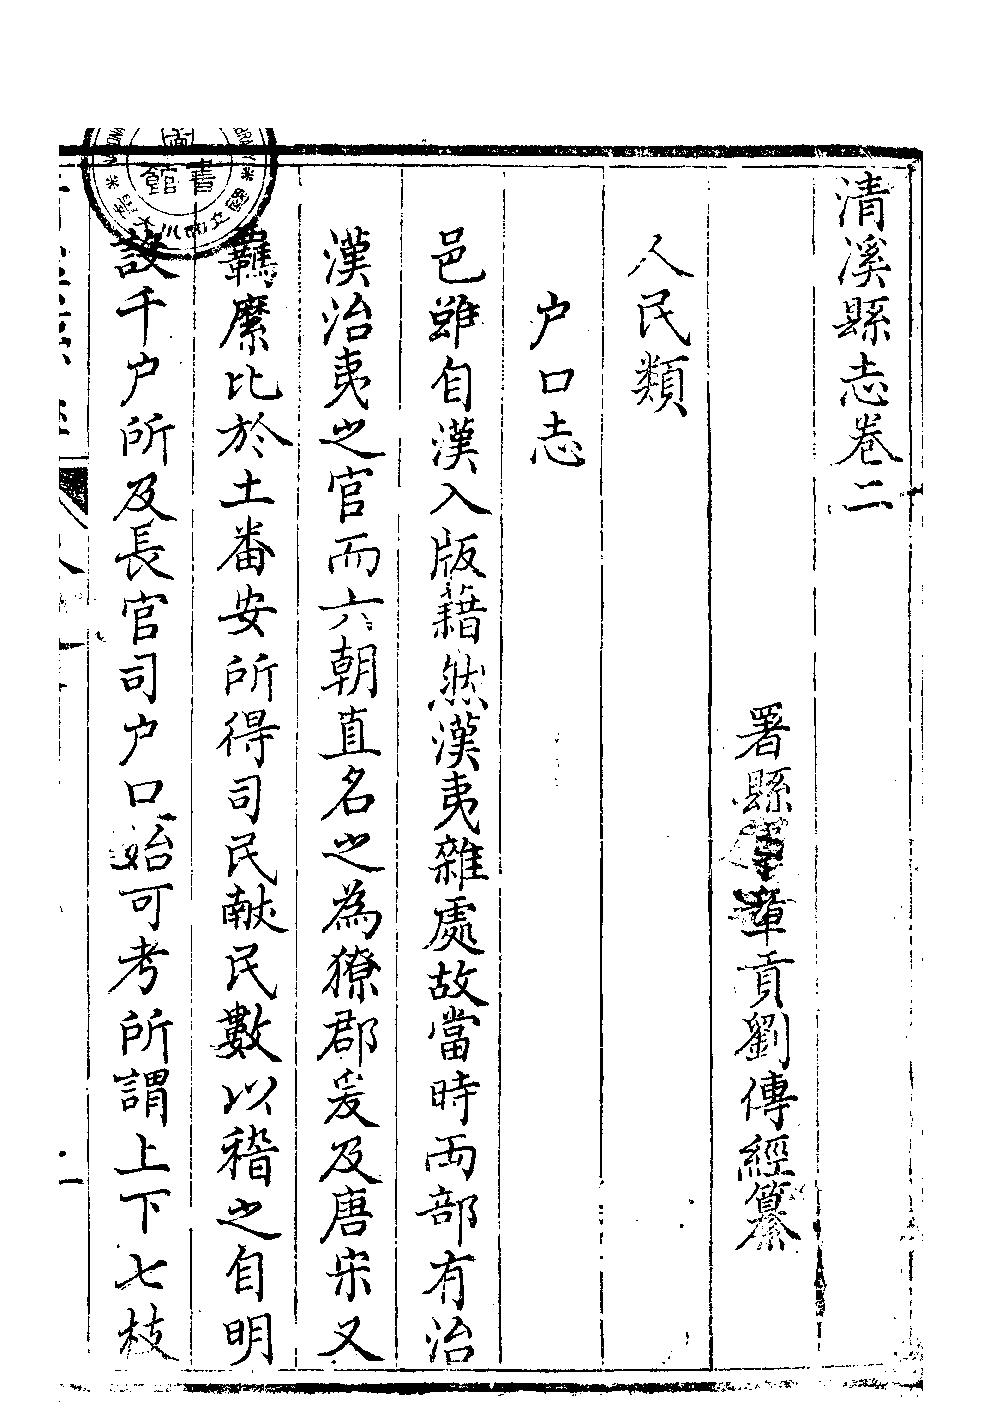 清溪縣志卷二
署縣 章貢劉傳經纂
人民類
户口志
邑雖自漢入版籍然漢夷雜處故當時兩部有治
漢治夷之官而六朝直名之為獠郡爰及唐宋又
羈縻比於土番安所得司民獻民數以稽之自明
設千户所及長官司户口始可考所謂上下七枝
書館